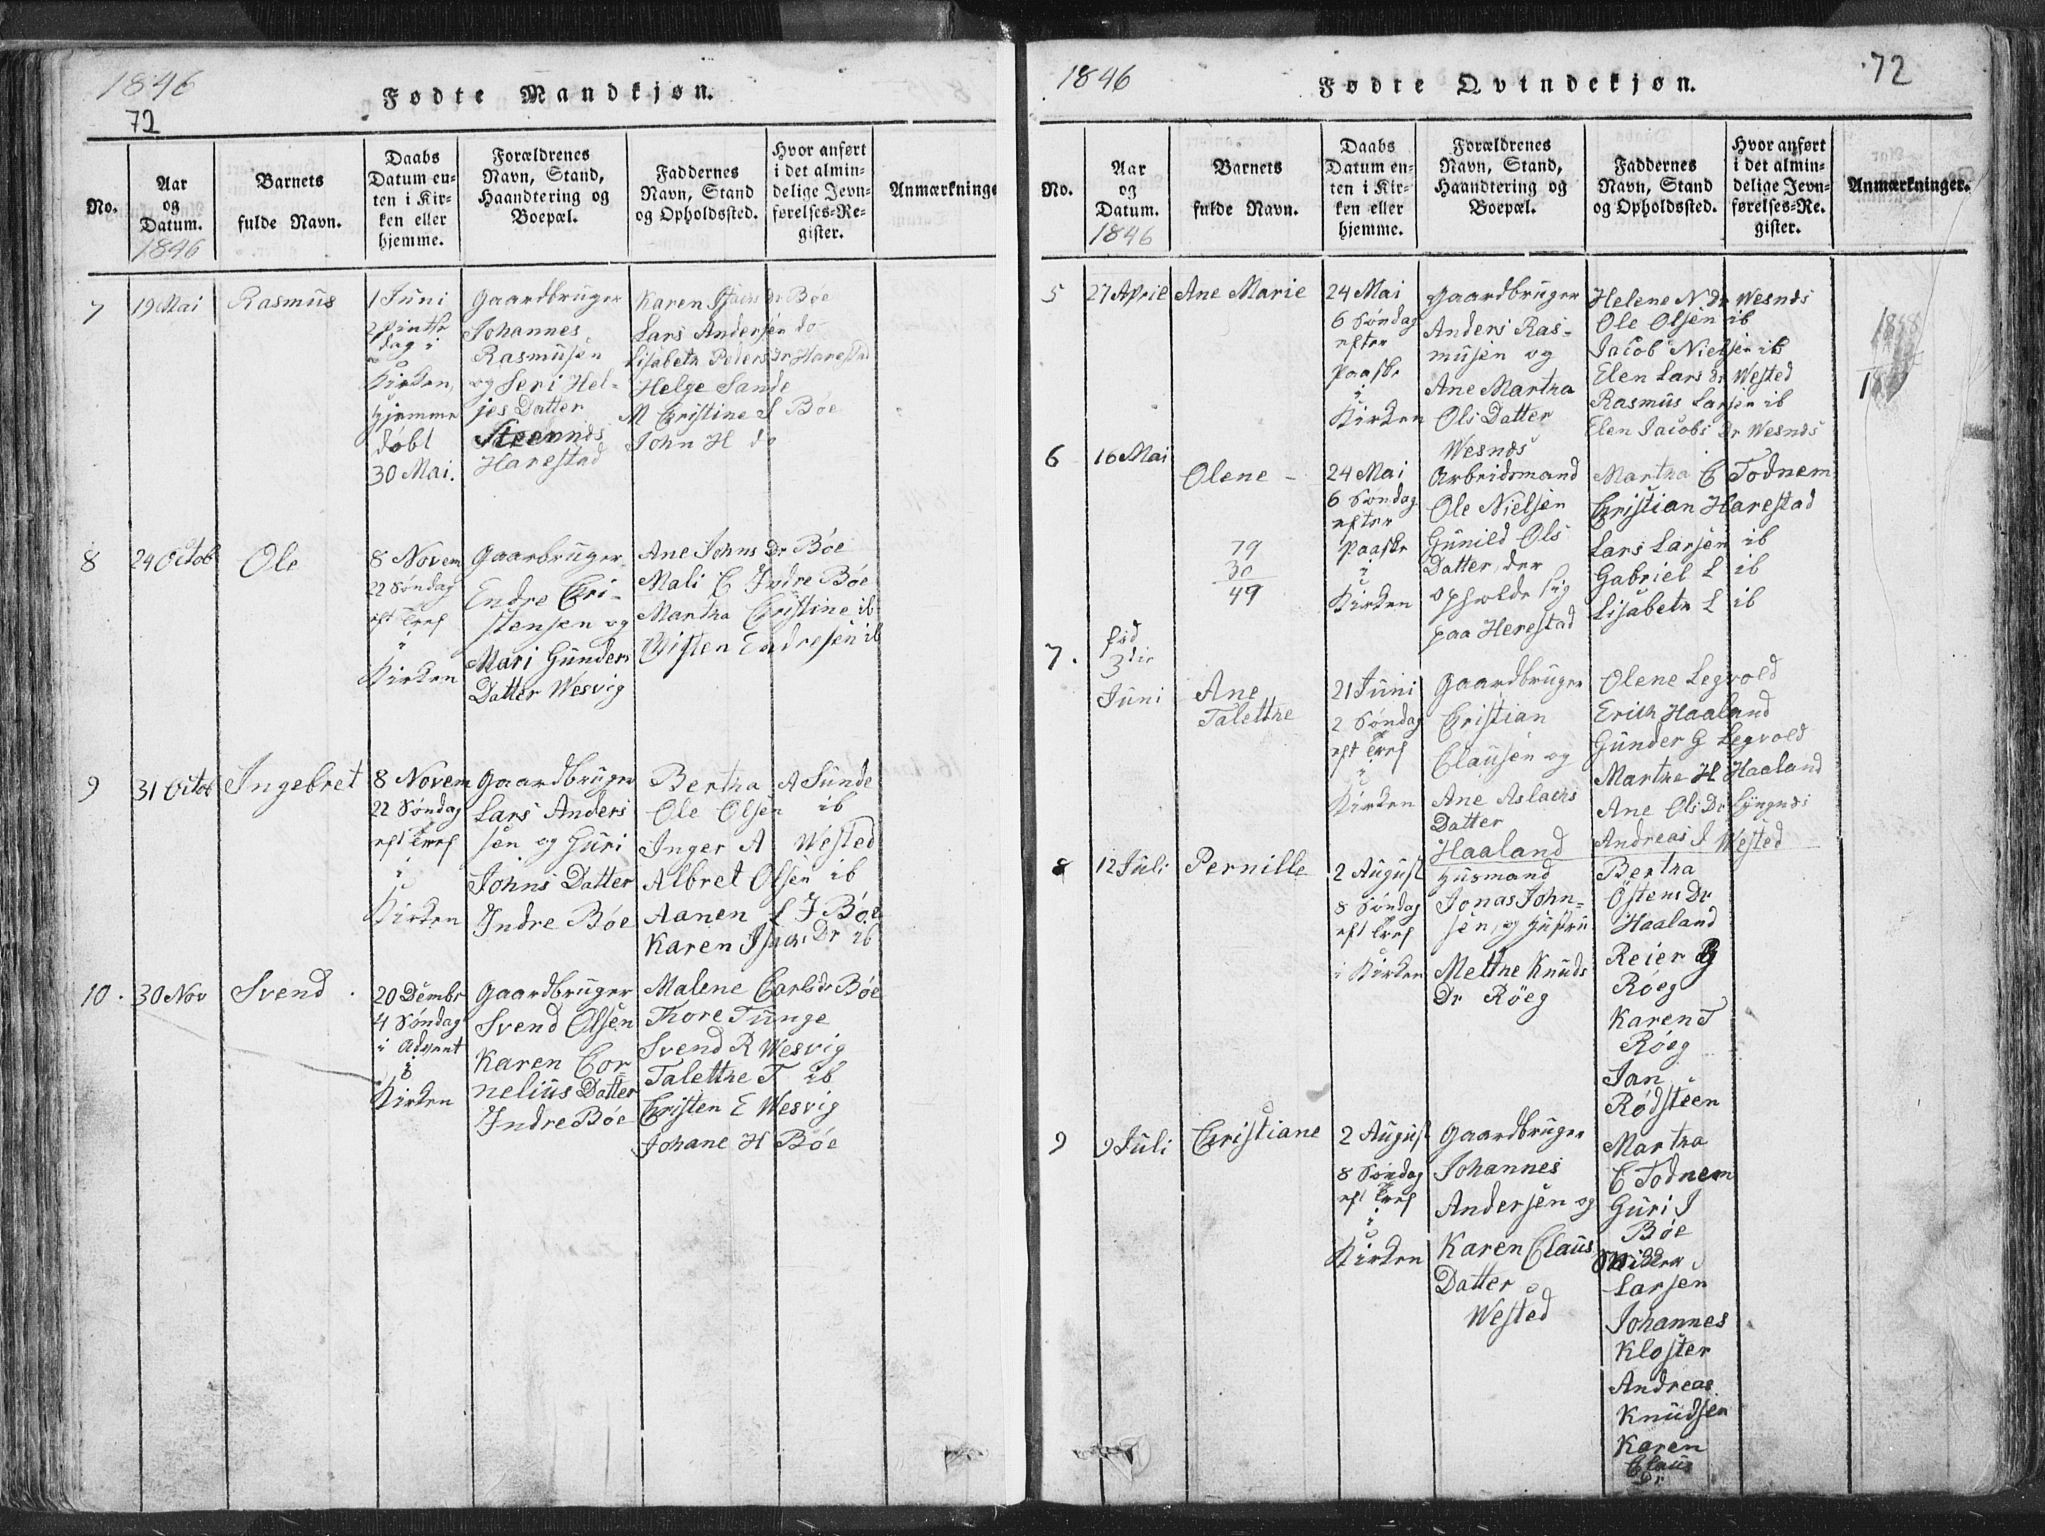 1846
Fødte Mandkjøn.
72
No.
Aar og Datum.
1846
Barnets fulde Navn.
Daabs Datum enten i Kirken eller hjemme.
Forældrenes Navn, Stand, Haandtering og Boepæl.
Faddernes Navn, Stand og Opholdssted.
Hvor anført i det almindelige Jevnførelses-Register.
Anmærkninge
7
19 Mai
Rasmus
1 Juni
dag i
Kirken,
hjemme
døbt
30 Mai.
Gaardbruger
Johannes
Rasmusen
og Seri Hel-
jes Datter
Harestad
Karen Isachs Dr Bøe
Lars Andersen do
Lisabeth Peders Dr Harestad
Helge Sande
M Christine L Bøe
John H do
8
24 Octob
Ole
8 Novem
22 Søndag
eft Tref
i
Kirken
Gaarbruger
Endre Chri-
stensen og
Mari Gunders
Datter Wesvig
Ane Johns Dr Bøe
Mali C Indre Bøe
Martha Christine ib
Christen Endresen ib
9
31 Octob
Ingebret
8 Novem
22 Søndag
eft Tref
i
Kirken
Gaardbruger
Lars Anders
sen og Guri
Johns Datter
Indre Bøe
Bertha A Sunde
Ole Olsen ib
Inger A Wested
Albret Olsen ib
Aanen L I Bøe
Karen Isachs Dr ib
10.
30 Nov
Svend.
20 Dembr
4 Søndag
i Advent
i
Kirken
Gaardbruger
Svend Olsen
Karen Cor=
nelius Datter
Indre Bøe
Malene Carlsdr Bøe
Thore Tunge
Svend R Wesvig
Talethe T ib
Christen E Wesvig
Johane H Bøe
1846
Fødte Qvindekjøn.
72
No.
Aar og Datum.
1846
Barnets fulde Navn.
Daabs Datum enten i Kirken eller hjemme.
Forældrenes Navn, Stand, Haandtering og Boepæl.
Faddernes Navn, Stand og Opholdssted.
Hvor anført i det almindelige Jevnførelses-Re. gister.
Anmærkninger.
5
27 April
Ane Marie
24 Mai
6 Søndag
efter
Paaske
i
Kirken
Gaardbruger
Anders Ras-
musen og
Ane Martha
Ols Datter
Wesnes
Helene N Dr Wesnes
Ole Olsen ib
Jacob Nielsen ib
Elen Lars Dr Wested
Rasmus Larsen ib
Elen Jacobs Dr Wesnes
6
16 Mai
Olene -
79
30
49
24 Mai
6 Søndag
efter
Paaske
i
Kirken
Arbeidsmand
Ole Nielsen
Gunild Ols
Datter, der
opholde sig
paa Herestad
Martha C Todnem
Christian Harestad
Lars Larsen ib
Gabriel L ib
Lisabeth L ib
7.
fød
3die
Juni
Ane
Talethe
21 Juni
2 Søndag
eft Tref
i
Kirken
Gaardbruger
Christian
Clausen og
Ane Aslachs
Datter
Haaland
Olene Legvold
Erich Haaland
Gunder G Legvold
Marthe H Haaland
Ane Ols Dr Lyngnes
Andreas I Wested
8
12 Juli
Pernille
2 August
8 Søndag
eft Tref
i Kirken
Husmand
Jonas John=
sen, og Hustru
Methe Knuds
Dr Röeg
Bertha
Östens Dr
Haaland
Reier
Röeg
Karen T
Röeg
Jan
Rödsteen
9
9 Juli
Christiane
2 August
8 Søndag
eft Tref
i
Kirken
Gaardbruger
Johannes
Andersen og
Karen Claus
Datter
Wested
Martha
C Todnem
Guri I
Bøe
Larsen
Johannes
Kloster
Andreas
Knudsen
Karen
Claus
Dr